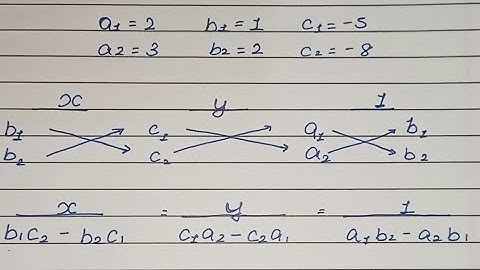 a₁ = 2 b₁ = 1 c₁ = -5
a₂ = 3 b₂ = 2 c₂ = -8
x y 1
b₁ c₁ a₁ b₁
b₂ c₂ a₂ b₂
x = y = 1
b₁c₂ - b₂c₁ c₁a₂ - c₂a₁ a₁b₂ - a₂b₁